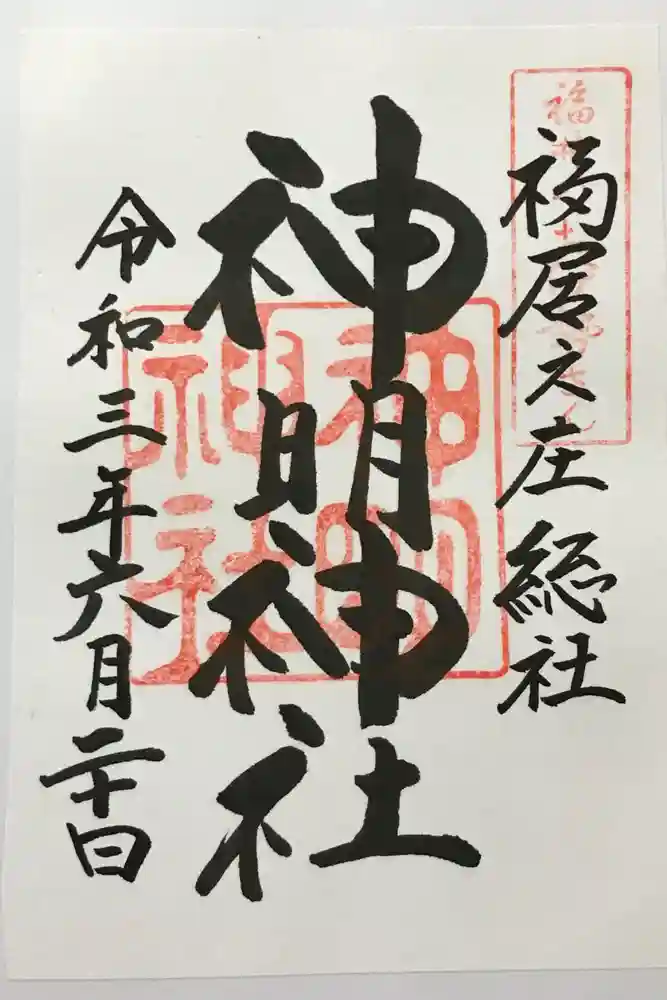 福居之庄総社
神明神社
神明神社
令和三年六月二十日